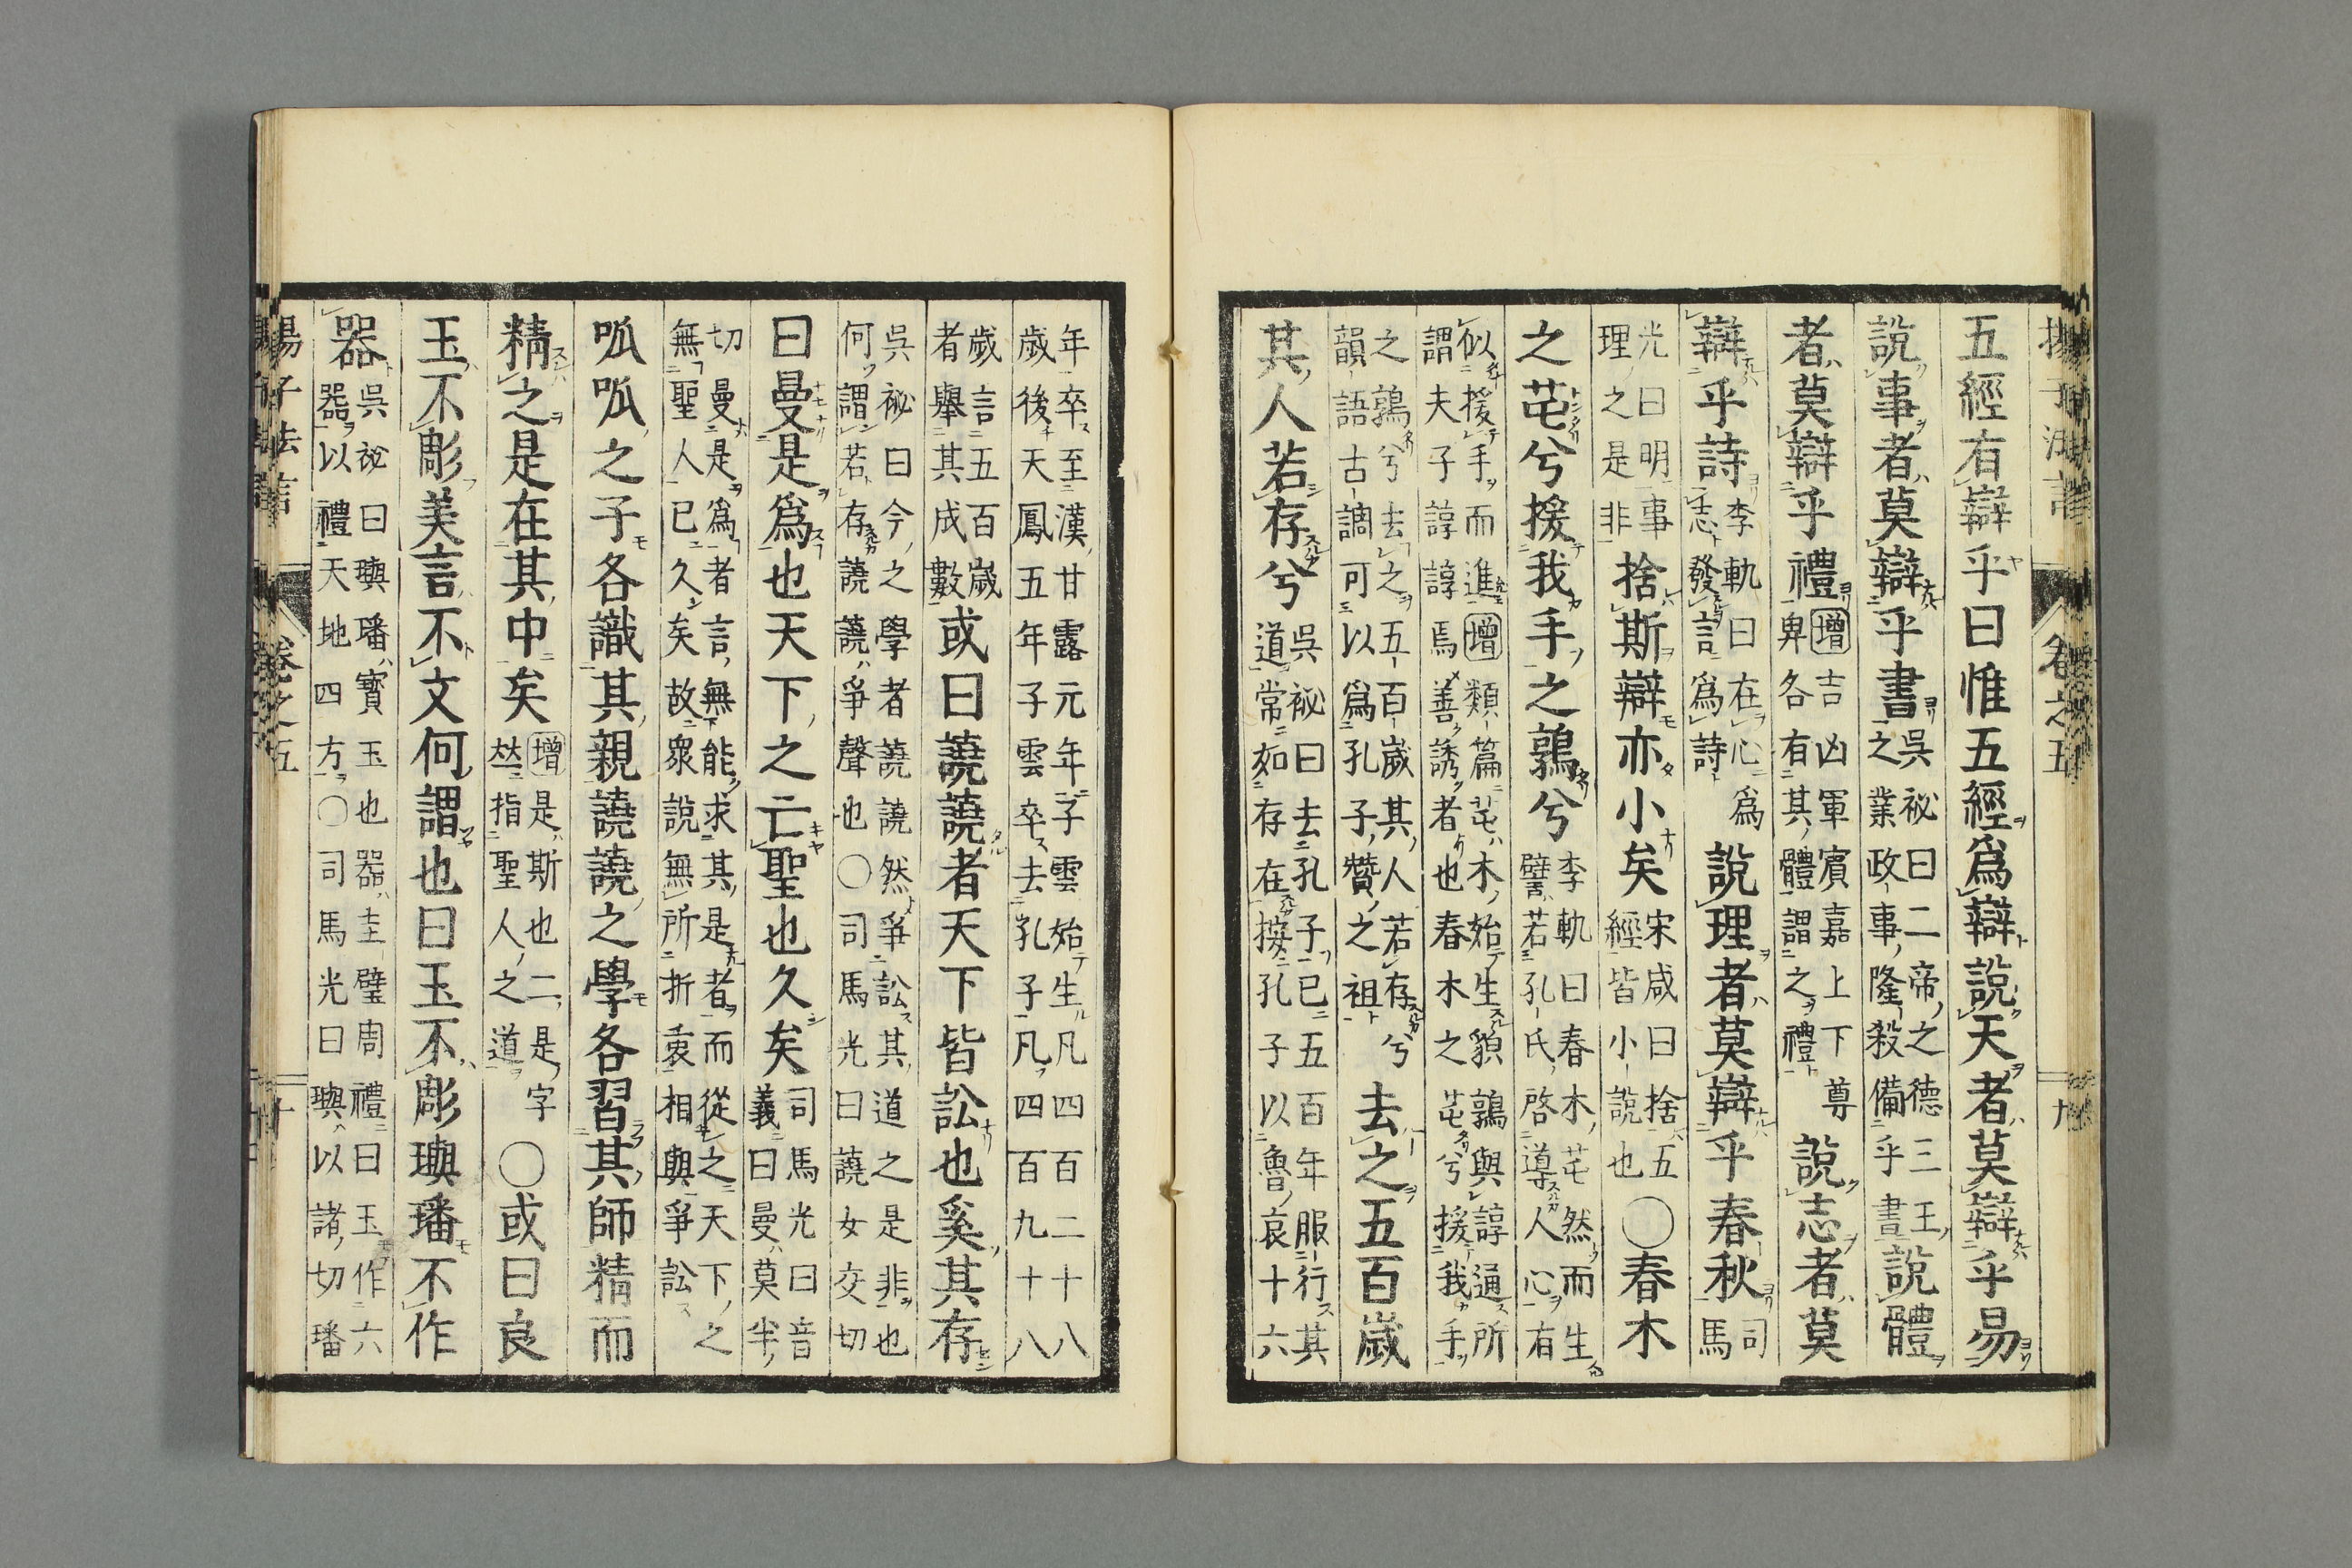 揚子法言　卷之五　九
五經有辯乎曰惟五經爲辯說天者莫辯乎易
說事者莫辯乎書吳祕曰二帝之德三王之業政事隆殺備乎書說體
者莫辯乎禮增吉凶軍賓嘉上下尊卑各有其體謂之禮說志者莫
辯乎詩李軌曰在心爲志發言爲詩說理者莫辯乎春秋司馬
光曰明事理之是非捨斯辯亦小矣宋咸曰捨五經皆小說也〇春木
之芚兮援我手之鶉兮李軌曰春木芚然而生譬若孔氏啓導人心有
似援手而進增類篇芚木始生貌鶉與諄通所謂夫子諄諄焉善誘者也春木之芚兮援我手
之鶉兮去之五百歲其人若存兮韻語古謫可以爲孔子贊之祖去之五百歲
其人若存兮吳祕曰去孔子已五百年服行其道常如存在按孔子以魯哀十六
年卒至漢甘露元年子雲始生凡四百二十八歲後天鳳五年子雲卒去孔子凡四百九十八
歲言五百歲者舉其成數或曰譊譊者天下皆訟也奚其存
吳祕曰今之學者譊譊然爭訟其道之是非也何謂若存譊譊爭聲也〇司馬光曰譊女交切
曰曼是爲也天下之亡聖也久矣司馬光曰音義曰曼莫半
切曼是爲者言無能求其是者而從之天下之無聖人已久矣故衆說無所折衷相與爭訟
呱呱之子各識其親譊譊之學各習其師精而
精之是在其中矣增是斯也二是字竝指聖人之道〇或曰良
玉不彫美言不文何謂也曰玉不彫璵璠不作
器吳祕曰璵璠寶玉也器圭璧周禮曰玉作六器以禮天地四方〇司馬光曰璵以諸切璠